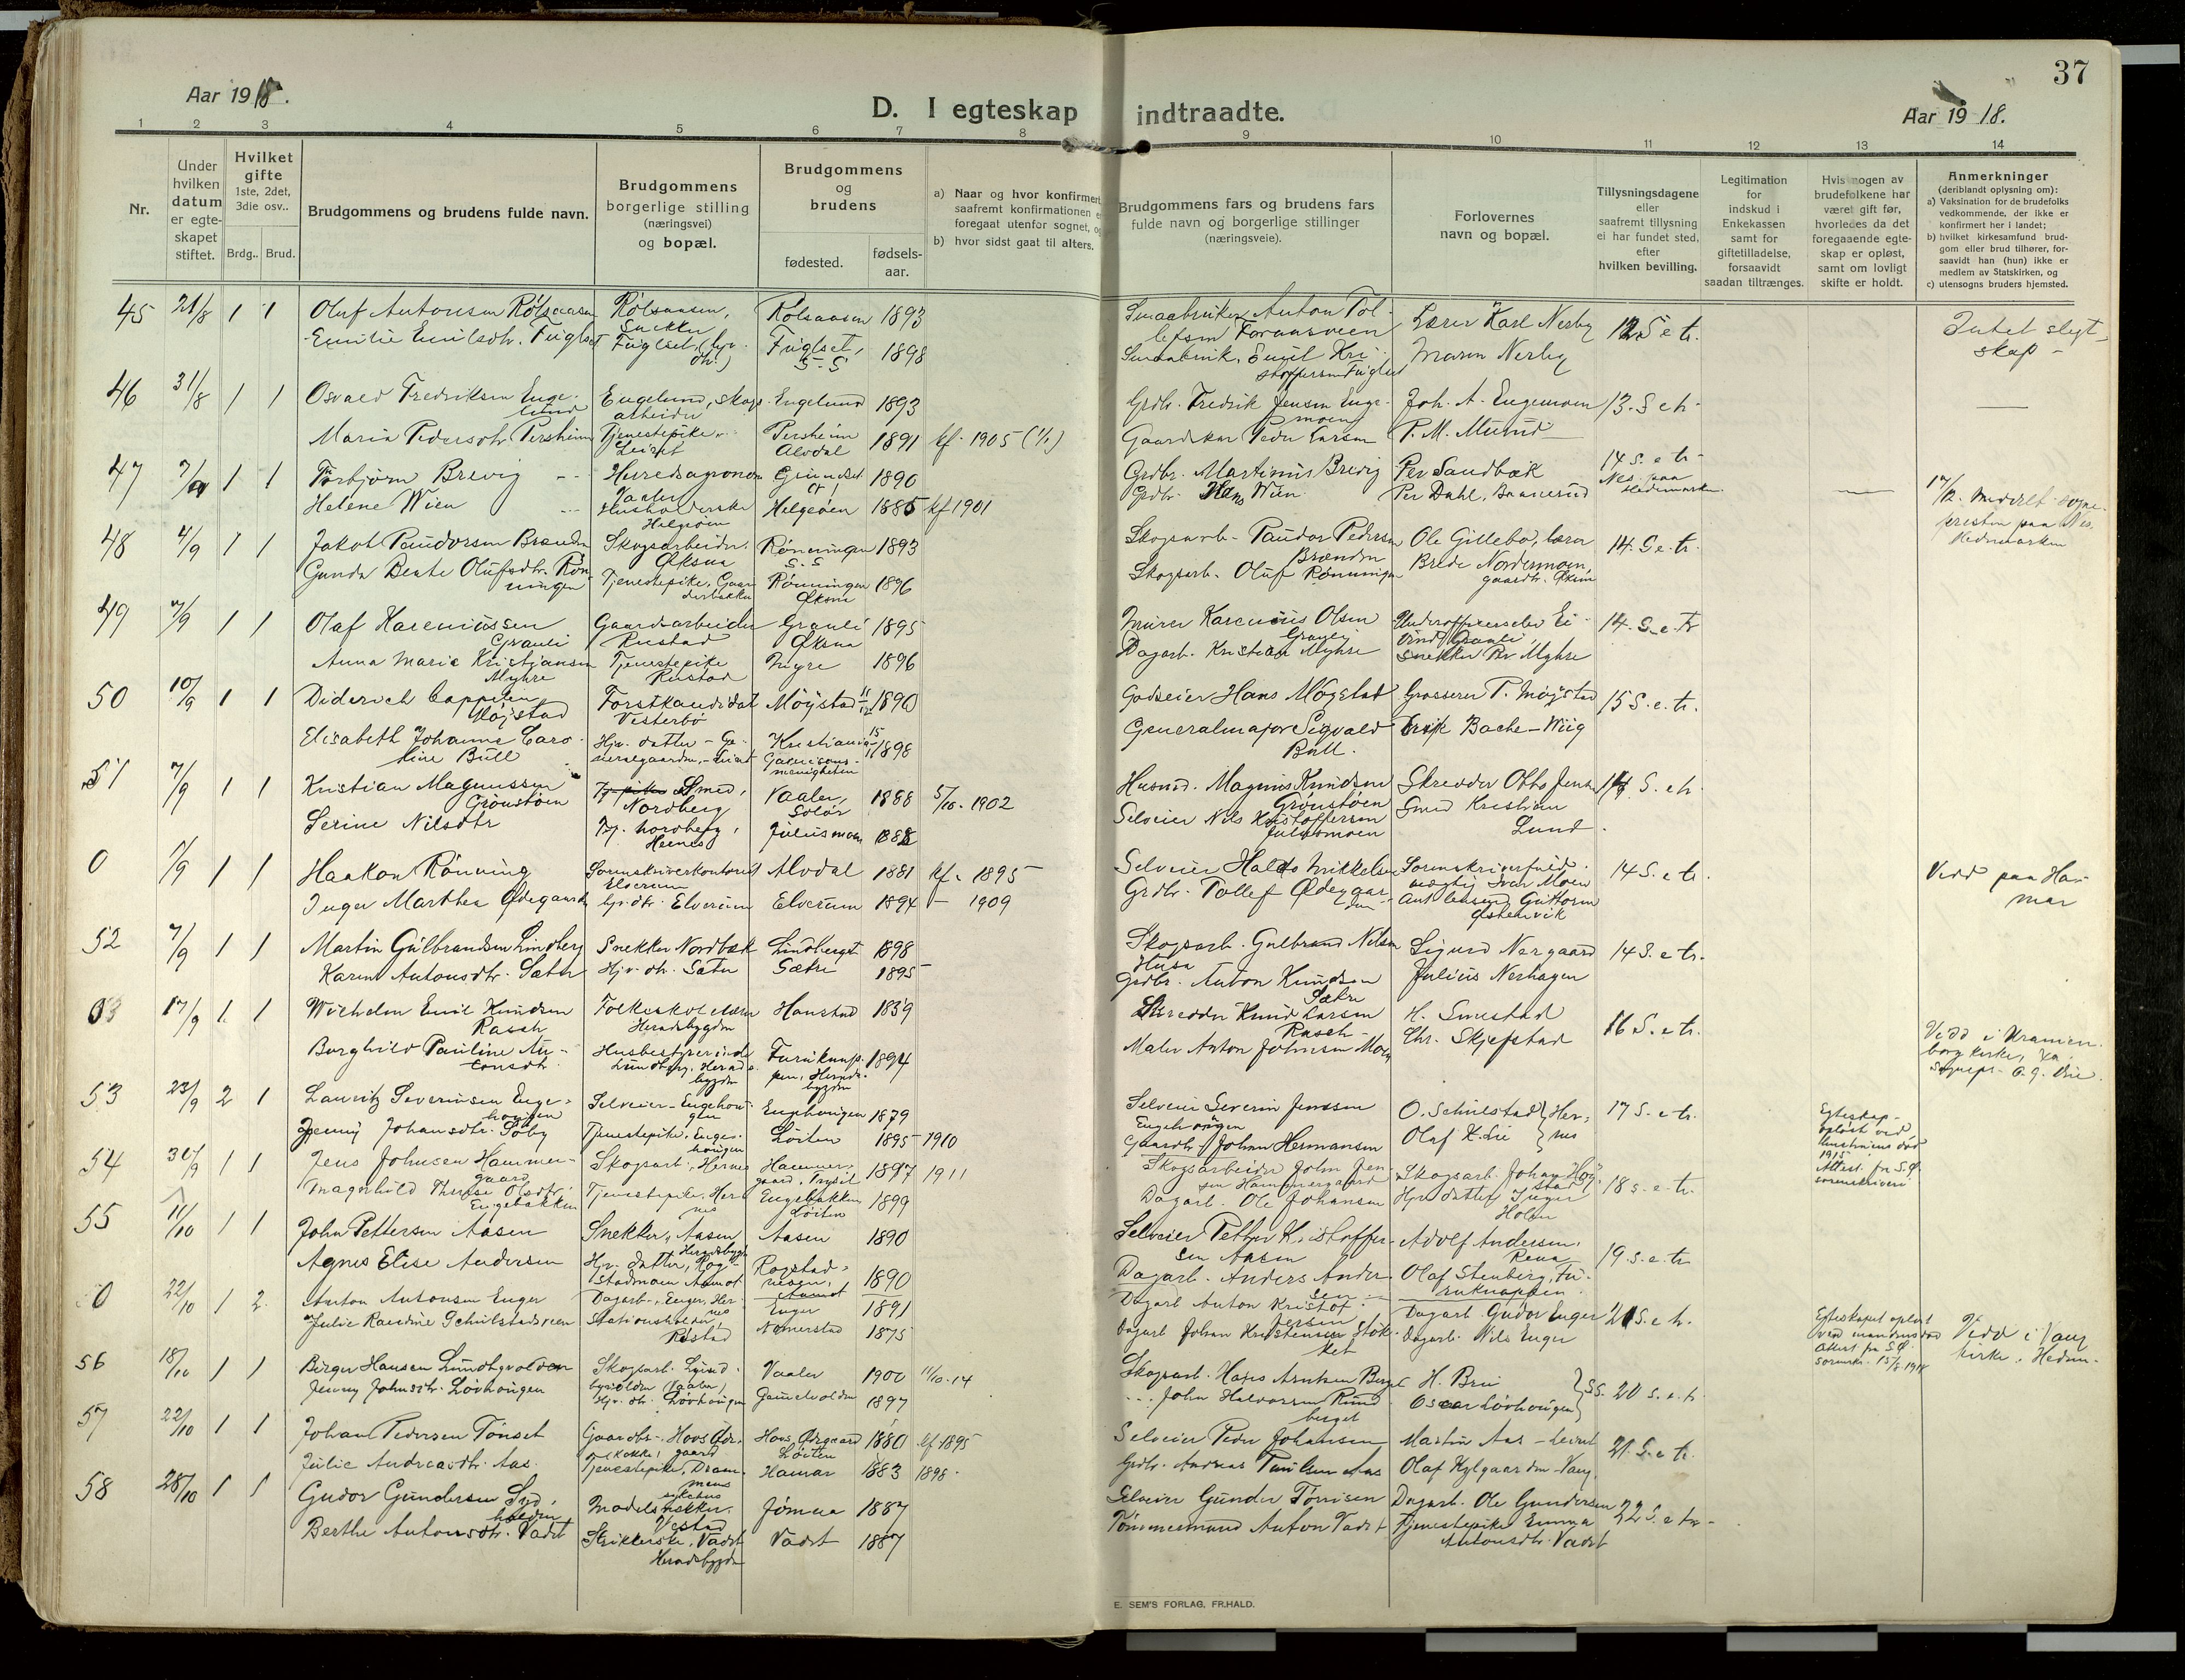 37
Aar 1918.
D. I egteskap indtraadte.
Aar 1918.
1 2 3 4 5 6 7 8 9 10 11 12 13 14
Nr.
Under hvilken datum er egteskapet stiftet.
Hvilket gifte
1ste, 2det, 3die osv..
Brdg.. Brud.
Brudgommens og brudens fulde navn.
Brudgommens borgerlige stilling (næringsvei) og bopæl.
Brudgommens og brudens
fødested.
fødselsaar.
a) Naar og hvor konfirmert
saafremt konfirmationen
foregaat utenfor sognet,
b) hvor sidst gaat til alters.
Brudgommens fars og brudens fars
fulde navn og borgerlige stillinger
(næringsveie).
Forlovernes
navn og bopæl.
Tillysningsdagene
eller
saafremt tillysning
ei har fundet sted,
efter
hvilken bevilling.
Legitimation
for
indskud i
Enkekassen
samt for
giftetilladelse,
forsaavidt
saadan tiltrænges.
Hvis nogen av
brudefolkene har
været gift før,
hvorledes da det
foregaaende egte-
skap er opløst,
samt om lovligt
skifte er holdt.
Anmerkninger
(deriblandt oplysning om):
a) Vaksination for de brudefolks
vedkommende, der ikke er
konfirmert her i landet;
b) hvilket kirkesamfund brud-
gom eller brud tilhører, for-
saavidt han (hun) ikke er
medlem av Statskirken, og
c) utensogns bruders hjemsted.
45 21/8 1 1 Oluf Antonsen Rölsaasen Rölsaasen, Snekker Rolsaasen 1893 Smaabruker Anton Tollefsen Foraasveen Lærer Karl Nerby 12 S e tr. Intet slegtskap -
Emilie Emilsdtr. Fuglset Fuglset, (hjv. dtr.) Fuglset, S-S 1898 Smaabruk. Emil Kristoffersen Fuglset Maren Nerby
46 31/8 1 1 Osvald Fredriksen Engelund Engelund, skogsarbeider Engelund 1893 Grdbr. Fredrik Jensen Engemoen Joh. A. Engemoen 13. S e tr.
Maria Pedersdtr. Persheim Tjenestepike Leiret Persheim Alvdal 1891 kf. 1905 Gaardskar Peder Larsen P. M. Mund
47 1 1 Torbjørn Brevig Herredsagronom Vaaler Grundset 1890 Grdbr. Martinus Brevig Per Sandbæk 14 s. e tr. Nes paa Hedemarken
Helene Wien Husholderske Helgøen Helgeöen 1885 kf 1901 Grdbr. Hans Wien Per Dahl, Baanerud
48 4/9 1 1 Jakob Paudorsen Brænden Skogsarbeider. Øksna Röningen S.S 1893 Skogsarb. Paudor Pedersen Brænden Ole Gillebo, lærer 14. S e. tr.
Gunda Beate Olufsdtr. Rönningen Tjenestepike, Rönningen Øksna 1896 Skogsarb. Oluf Rønningen Brede Nordermoen, gaardbr. Øksna
49 7/9 1 1 Olaf Kareniussen Grauli Gaardsarbeider Rustad Grauli Øksna 1895 Murer Karenius Olsen Grauli Underofficerselev Eivind Grauli 14. S. e. tr
Anna Marie Kristjansen Myhre Tjenestepike Rustad Myre 1896 Dagarb. Kristian Myhre Snekker Per Myhre
50 10/9 1 1 Diderich Cappelen Möjstad Forstkandidat Vesterbö Möystad 1890 Godseier Hans Møystad Grosserer T. Møjstad 15 S. e. tr.
Elisabeth Johanne Caroline Bull Hjv. datter - Generalgaarden, Leiret Kristiania Garnisonsmenigheten 1898 Generalmajor Sigvald Bull. Bache-Wiig
51 7/9 1 1 Kristian Magnussen Grönstöen Smed, Nordberg Vaaler, Solör 1888 5/10. 1902 Husmd. Magnus Knudsen Grönstöen Skredder Otto Jensen 14 S. e tr
Serine Nilsdtr Tj. Nordberg, Hernes Juliusmoen 1888 Selveier Nils Kristoffersen Julusmoen Smed Kristian Lund
0 1/9 1 1 Haakon Rönning Sorenskriverkontorist Elverum Alvdal 1881 kf. 1895 Selveier Haldo Mikkelsen Sorenskriverfuldmægtig Ivar Moen 14 S. e tr. Viedd paa Hamar
Inger Marthea Ødegaard hjv. dtr. Elverum Elverum 1894 - 1909 Grdbr. Tollef Ødegaarden Guttorm Østenvik
52 7/9 1 1 Martin Gulbrandsen Lindberg Snekker Nordbæk Lindberget 1898 Skogsarb. Gulbrand Nilsen Husa Sigurd Nergaard 14 S. e tr.
Karen Antonsdtr. Sætre Hjv. dtr. Sætre Sætre 1895 Grdbr. Anton Knudsen Sætre Julius Neshagen
03 17/9 1. 1 Wilhelm Emil Knudsen Rasch Folkeskolelærer Heradsbygden Hanstad 1889 Skredder Knud Larsen Rasch H. Smestad 16 S. e tr. Viedd i Uranienborg kirke,
Borghild Pauline Antonsdtr. Husbestyrerinde Lundberg, Heradsbygden Furuknappen, Heradsbygden 1894 Maler Anton Johnsen Moen Chr. Skjefstad
53 23/9 2 1 Lauritz Severinsen Engehougen Selveier - Engehougen Engehougen 1879 Selveier Severin Jenssen Engehougen O. Schulstad Hernes 17 S. e tr. Egteskap opløst ved hustruens død 1915 Attest fra S.Ø. sorenskriveri
Jenny Johansdtr. Söby Tjenestepike, Engehougen Löiten 1895 - 1910 Gaardbr. Johan Hermansen Olaf K. Lie
54 30/9 1 1 Jens Johnsen Hammergaard Skogsarb. Hernes Hammergaard, Trysil 1897 1911 Skogsarbeider John Jensen Hammergaard Skogsarb. Johan Hogstad 18 s. e. tr.
Magnhild Therese Olsdtr. Engebakken Tjenestepike, Hernes Engebakken Löiten 1899 Dagarb. Ole Johansen Hjv. datter Inger Holen
55 11/10 1 1 John Pettersen Aasen Snekker, Aasen Heradsbygd Aasen 1890 Selveier Petter Kristoffersen Aasen Adolf Andersen, Rena 19. s. e. tr
Agnes Elise Andersen Hjv. datter, Rogstadmoen Aamot Rogstadmoen, Aamot 1890 Dagarb. Anders Andersen Olaf Stenberg, Furuknappen
0 22/10 1 2. Anton Antonsen Enger Dagarb. Enger, Hernes Enger 1891 Dagarb Anton Kristoffersen Dagarb Gudor Enger 21 S. e tr. Egteskapet opløst ved mandens død Attest fra S.Ø. sorenskr. 15/8 1918 Viedd i Vang kirke, Hedm.
Julie Raudine Schulstadsveen Stationsholder, Rustad Nomerstad 1875 Dagarb Johan Kristensen Dagarb. Nils Enger
56 18/10 1 1 Birger Hansen Lundbyvolden Skogsarb. Lundbyvolden (Vaaler) Vaaler 1900 11/10-14 Skogsarb. Hans Arntsen Berget H. Brii SS. 20 s. e. tr.
Jenny Johnsdtr. Lövhougen Hjv. dtr. Lövhougen Gamelvolden 1897 John Halvorsen Rundberget Oscar Lövhougen
57 22/10 1 1 Johan Pedersen Tönset Gaardbr. Hovs Ødegaard Hovs Ødegaard Löiten 1880 kf 1895 Selveier Peder Johansen Martin Aas - Leiret 21. S. e tr.
Julie Andreasdtr. Aas. Tjenestepike, Drammens sykehus Hamar 1883 1898. Grdbr. Andreas Paulsen Aas Olaf Hylgaarden - Vang
58 28/10 1 1 Gudor Gundersen Sydholden Modelsnekker. Vestad Jömna 1887 Selveier Gunder Tönisen Dagarb. Ole Gundersen 22 S. e tr.
Berthe Antonsdtr. Vadet Strikkerske, Vadet Heradsbygd Vadet 1887 Tömmermand Anton Vadet Tjenestepike Emma Antonsdtr. Vadet
E. SEM'S FORLAG, FR.HALD.